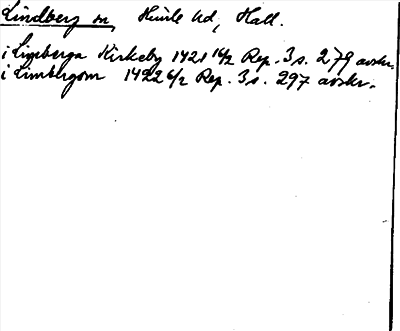 Lindberg sn, Himle hd, Hall.
i Limberga Kirkeby 1421 16/2 Rep. 3 s. 279 avskr.
i Limbergom 1422 6/2 Rep. 3 s. 297 avskr.